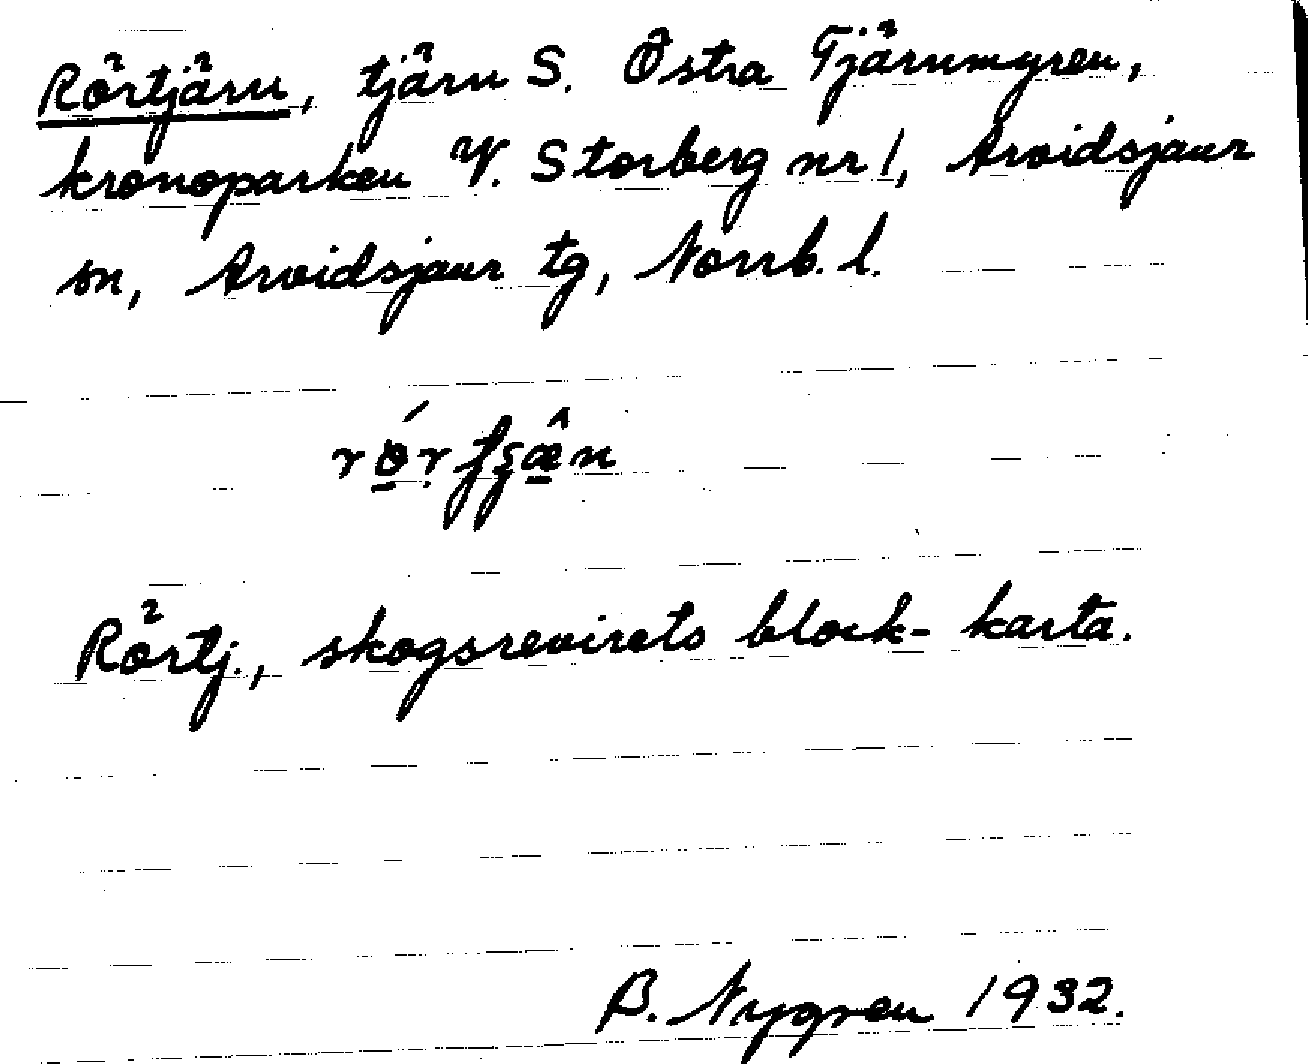 Rörtjärn, tjärn S. Östra Tjärnmyren,
kronoparken V. Storberg nr 1, Arvidsjaur
sn, Arvidsjaur tg, Norrb. l.
Rörtj., skogsrevirets block- karta.
B. Nygren 1932.